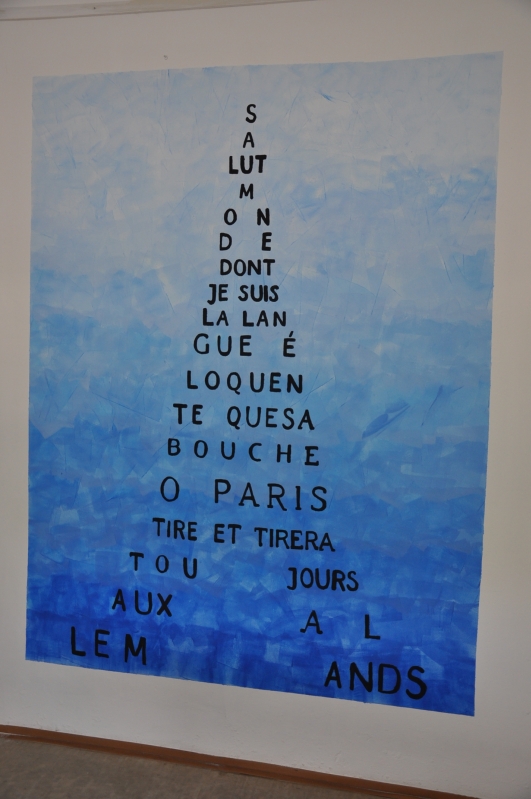 S
A
LUT
M
O N
D E
DONT
JE SUIS
LA LAN
GUE É
LOQUEN
TE QUESA
BOUCHE
O PARIS
TIRE ET TIRERA
TOU JOURS
AUX A L
LEM ANDS